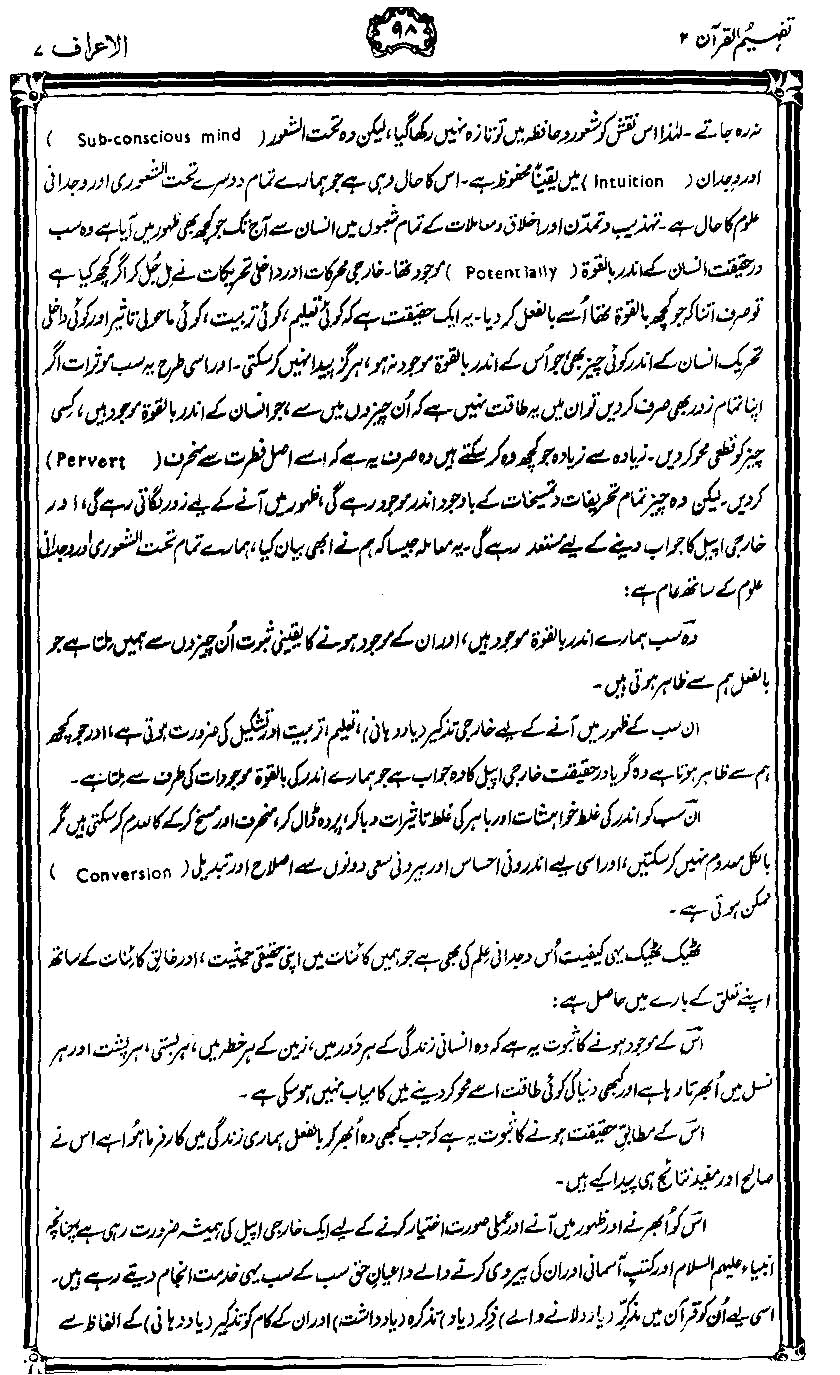 تفہیم القرآن ۲
۹۸
الاعراف ۷
نہ رہ جاتے۔ لہٰذا اس نقش کو شعور و حافظہ میں تو تازہ نہیں رکھا گیا، لیکن وہ تحت الشعور ( Sub-conscious mind )
اور وجدان ( Intuition ) میں یقیناً محفوظ ہے۔ اس کا حال وہی ہے جو ہمارے تمام دوسرے تحت الشعوری اور وجدانی
علوم کا حال ہے۔ تہذیب و تمدّن اور اخلاق و معاملات کے تمام شعبوں میں انسان سے آج تک جو کچھ بھی ظہور میں آیا ہے وہ سب
درحقیقت انسان کے اندر بالقوۃ ( Potentially ) موجود تھا۔ خارجی محرکات اور داخلی تحریکات نے مِل جُل کر اگر کچھ کیا ہے
تو صرف اتنا کہ جو کچھ بالقوۃ تھا اُسے بالفعل کر دیا۔ یہ ایک حقیقت ہے کہ کوئی تعلیم، کوئی تربیت، کوئی ماحولی تاثیر اور کوئی داخلی
تحریک انسان کے اندر کوئی چیز بھی، جو اُس کے اندر بالقوۃ موجود نہ ہو، ہرگز پیدا نہیں کر سکتی۔ اور اسی طرح یہ سب موثرات اگر
اپنا تمام زور بھی صرف کر دیں تو ان میں یہ طاقت نہیں ہے کہ اُن چیزوں میں سے، جو انسان کے اندر بالقوۃ موجود ہیں، کسی
چیز کو قطعی محو کر دیں۔ زیادہ سے زیادہ جو کچھ وہ کر سکتے ہیں وہ صرف یہ ہے کہ اسے اصل فطرت سے منحرف ( Pervert )
کر دیں۔ لیکن وہ چیز تمام تحریفات و تمسیخات کے باوجود اندر موجود رہے گی، ظہور میں آنے کے لیے زور لگاتی رہے گی، اور
خارجی اپیل کا جواب دینے کے لیے مستعد رہے گی۔ یہ معاملہ جیسا کہ ہم نے ابھی بیان کیا، ہمارے تمام تحت الشعوری اور وجدانی
علوم کے ساتھ عام ہے:
وہ سب ہمارے اندر بالقوۃ موجود ہیں، اور ان کے موجود ہونے کا یقینی ثبوت اُن چیزوں سے ہمیں مِلتا ہے جو
بالفعل ہم سے ظاہر ہوتی ہیں۔
ان سب کے ظہور میں آنے کے لیے خارجی تذکیر (یاد دہانی)، تعلیم، تربیت اور تشکیل کی ضرورت ہوتی ہے، اور جو کچھ
ہم سے ظاہر ہوتا ہے وہ گویا درحقیقت خارجی اپیل کا وہ جواب ہے جو ہمارے اندر کی بالقوۃ موجودات کی طرف سے مِلتا ہے۔
ان سب کو اندر کی غلط خواہشات اور باہر کی غلط تاثیرات دبا کر، پردہ ڈال کر، منحرف اور مسخ کر کے کالعدم کر سکتی ہیں مگر
بالکل معدوم نہیں کر سکتیں، اور اسی لیے اندرونی احساس اور بیرونی سعی دونوں سے اصلاح اور تبدیلی ( Conversion )
ممکن ہوتی ہے۔
ٹھیک ٹھیک یہی کیفیت اُس وجدانی عِلم کی بھی ہے جو ہمیں کائنات میں اپنی حقیقی حیثیت، اور خالقِ کائنات کے ساتھ
اپنے تعلق کے بارے میں حاصل ہے:
اس کے موجود ہونے کا ثبوت یہ ہے کہ وہ انسانی زندگی کے ہر دَور میں، زمین کے ہر خطہ میں، ہر بستی، ہر پشت اور ہر
نسل میں اُبھرتا رہا ہے اور کبھی دنیا کی کوئی طاقت اسے محو کر دینے میں کامیاب نہیں ہو سکی ہے۔
اس کے مطابقِ حقیقت ہونے کا ثبوت یہ ہے کہ جب کبھی وہ اُبھر کر بالفعل ہماری زندگی میں کارفرما ہُوا ہے اس نے
صالح اور مفید نتائج ہی پیدا کیے ہیں۔
اس کو اُبھرنے اور ظہور میں آنے اور عملی صورت اختیار کرنے کے لیے ایک خارجی اپیل کی ہمیشہ ضرورت رہی ہے، چنانچہ
انبیاء علیہم السلام اور کتبِ آسمانی اور ان کی پیروی کرنے والے داعیانِ حق سب کے سب یہی خدمت انجام دیتے رہے ہیں۔
اسی لیے اُن کو قرآن میں مذکِّر (یاد دلانے والے) ذِکر (یاد) تذکرہ (یادداشت) اور ان کے کام کو تذکیر (یاد دہانی) کے الفاظ سے